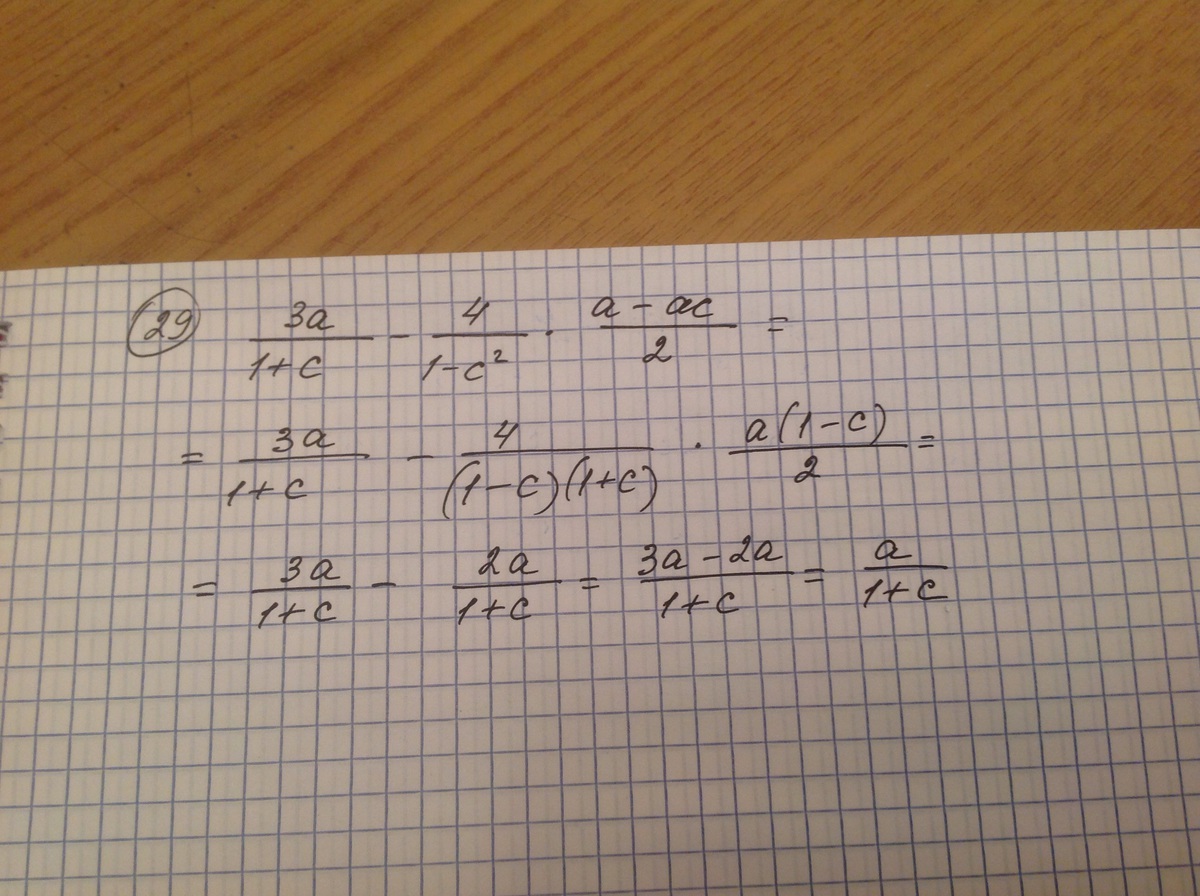 29 3a/(1+c) - 4/(1-c²) · (a-ac)/2 =
= 3a/(1+c) - 4/((1-c)(1+c)) · a(1-c)/2 =
= 3a/(1+c) - 2a/(1+c) = (3a-2a)/(1+c) = a/(1+c)